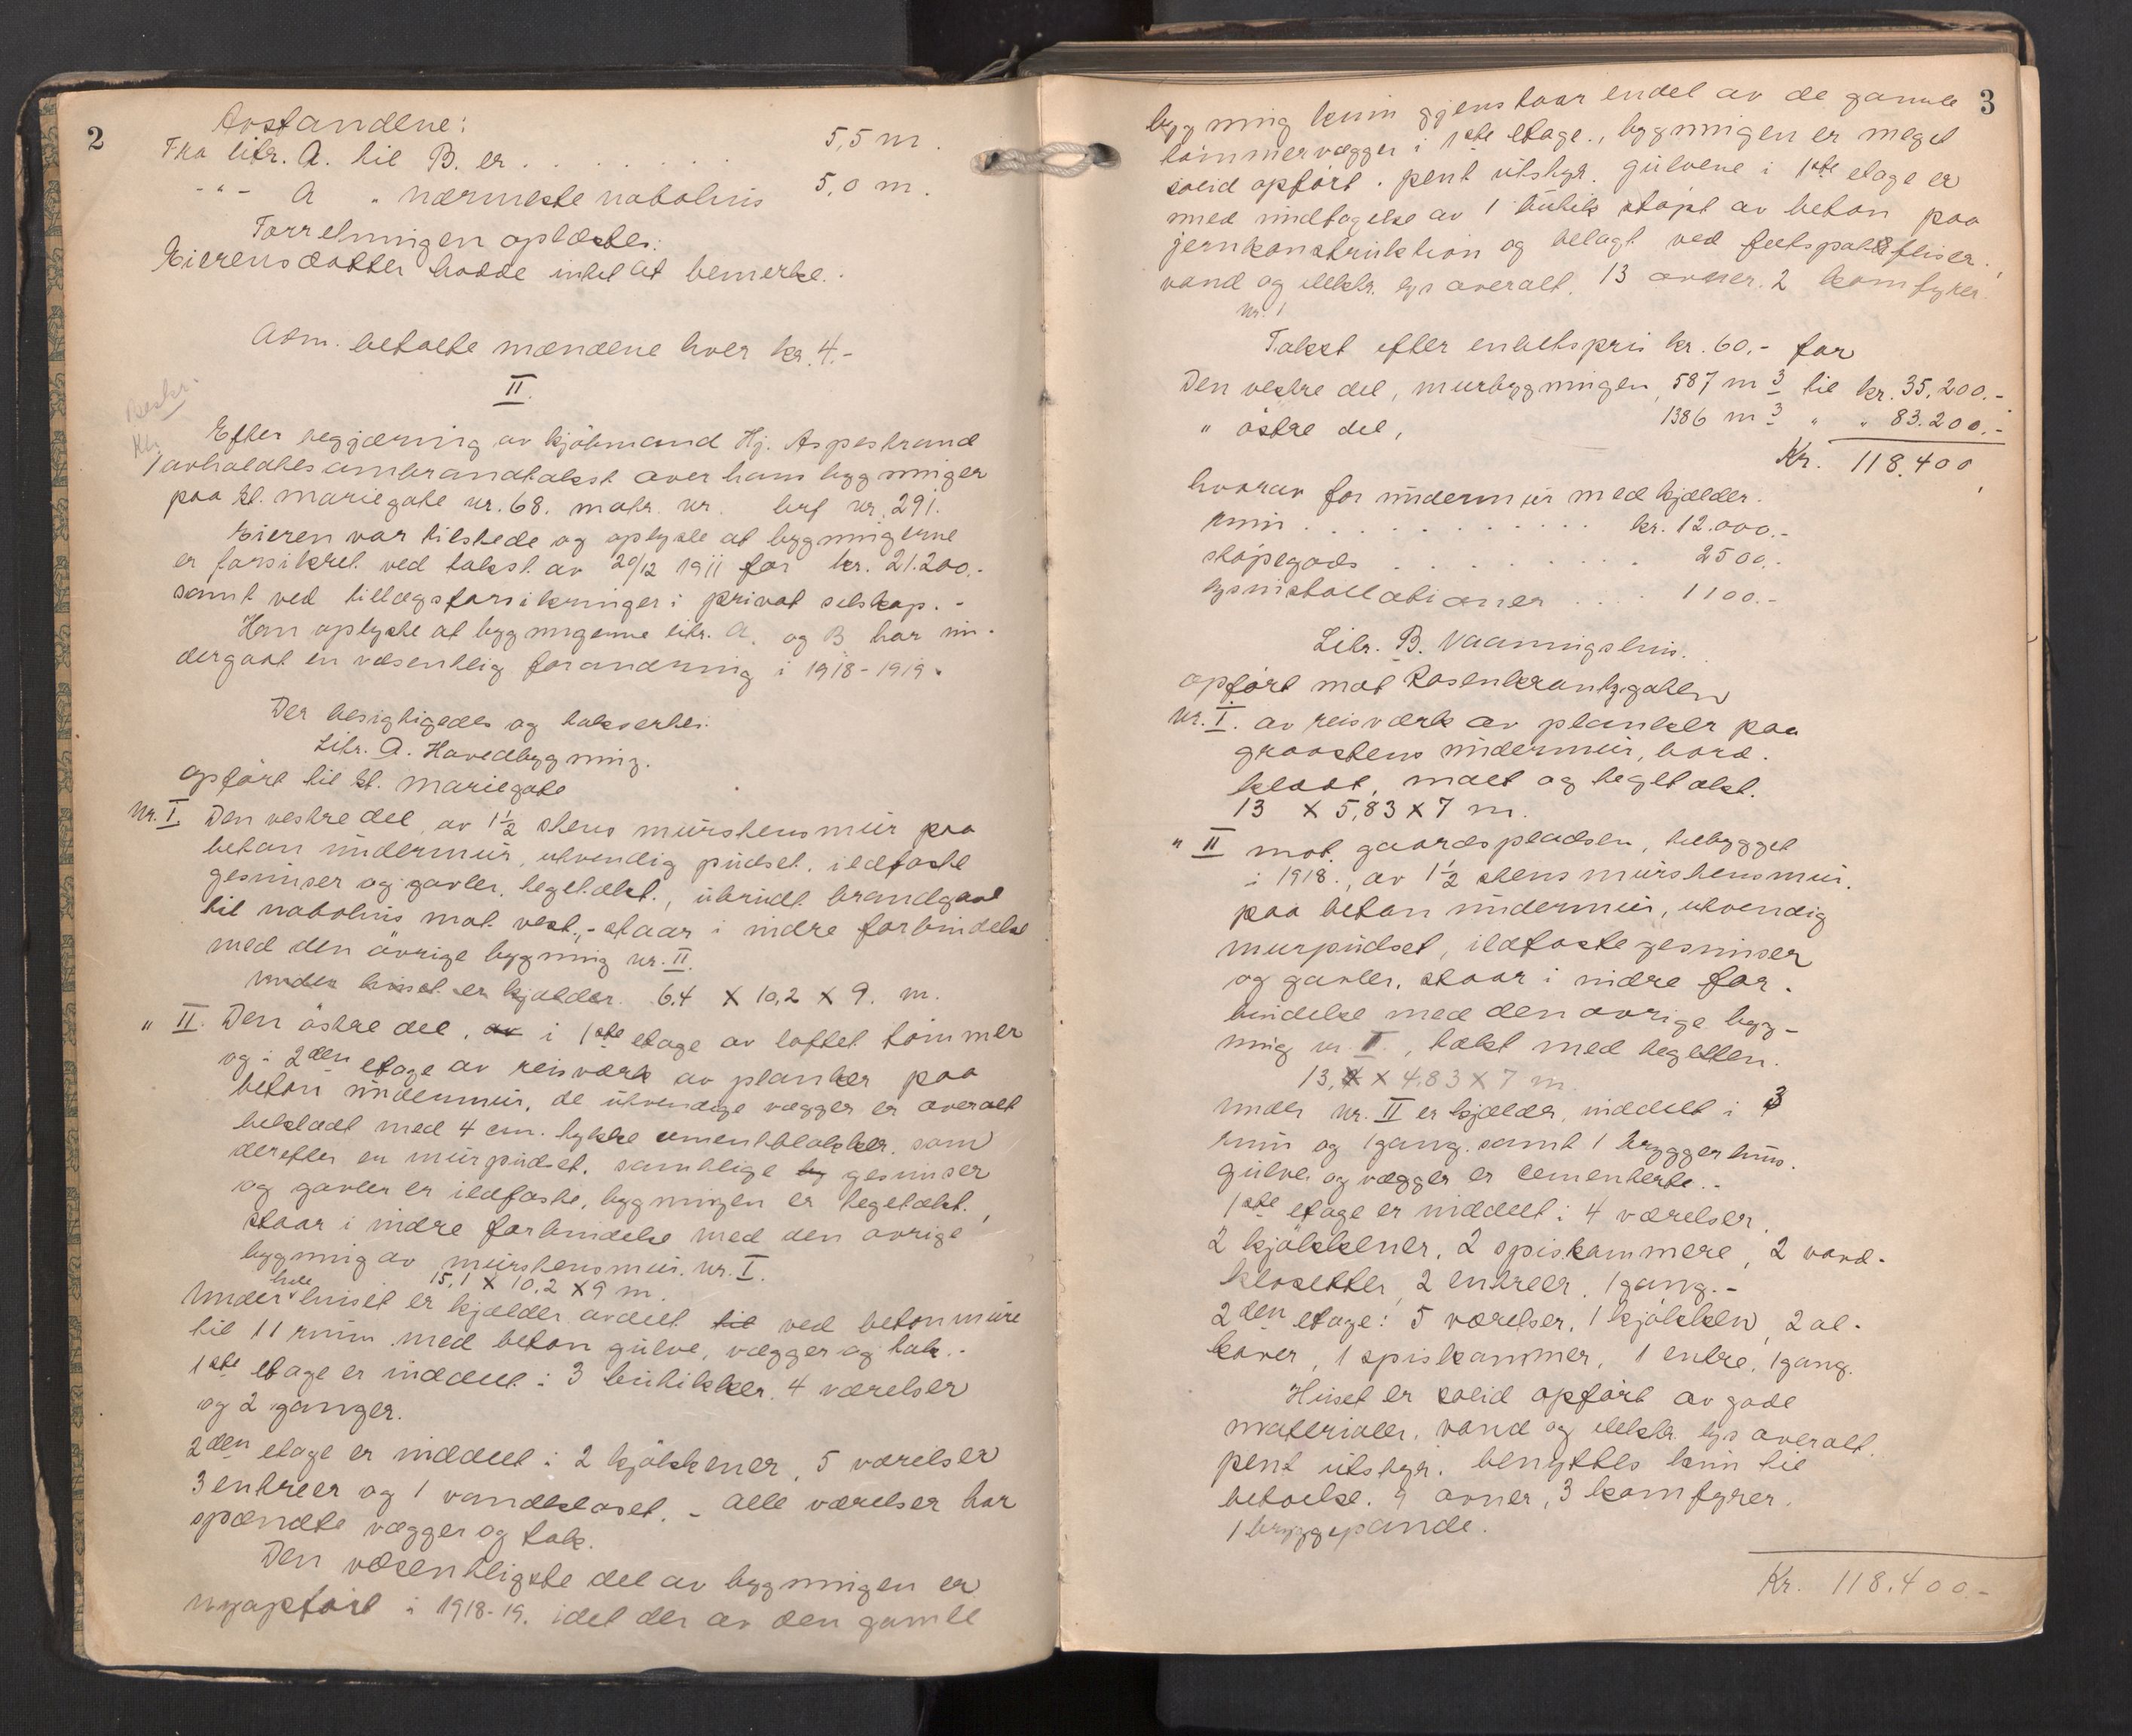 2
Avstandene:
Fra litr. A. til B. er . . . . . . . 5,5 m.
-"- A " nærmeste nabohus 5,0 m.
Forretningen oplæstes.
Eierens datter hadde intet at bemerke.
Adm. betalte mændene hver kr. 4.-
II.
Efter begjæring av kjöbmand Hj. Aspestrand
avholdtes ombrandtakst over hans bygninger
paa St. Mariegate nr. 68. matr. nr. brf nr. 291.
Eieren var tilstede og oplyste at bygningerne
er forsikret ved takst av 29/12 1911 for kr. 21.200.-
samt ved tillægsforsikringer i privat selskap. -
Han oplyste at bygningerne litr. A. og B har un-
dergaat en væsentlig forandring i 1918-1919.
Der besigtigedes og takserte:
Litr. A. Hovedbygning.
opfört til St. Mariegate
Nr. I. Den vestre del, av 1½ stens mürstensmür paa
beton ündermür, utvendig püdset. ildfaste
gesimser og gavler, tegltækt., übrüdt brandgavl
til nabohüs mot vest,- staar i indre forbindelse
med den övrige bygning nr. II.
Under hüset er kjælder. 6,4 x 10,2 x 9. m.
" II. Den östre del, av i 1ste etage av laftet tömmer
og i 2den etage av reisværk av planker paa
beton ündermür, de ütvendige vægger er overalt
beklædt med 4 cm. tykke cementblokker, som
derefter er mürpüdset. samtlige by gesimser
og gavler er ildfaste, bygningen er tegltækt.,
staar i indre forbindelse med den övrige
bygning av mürstensmür. nr. I.
15,1 x 10,2 x 9 m.
Under hele hüset er kjælder avdelt til ved betonmüre
til 11 rüm med beton gülve, vægger og tak.-
1ste etage er inddelt i 3 bütikker, 4 værelser
og 2 ganger.
2den etage er inddelt i 2 kjökkener, 5 værelser
3 entreer og 1 vandkloset. - Alle værelser har
spændte vægger og tak.
Den væsentligste del av bygningen er
nyopfört i 1918-19. idet der av den gamle
3
bygning kün gjenstaar endel av de gamle
tömmervægger i 1ste etage., bygningen er meget
solid opfört. pent ütstyr. gülvene i 1ste etage er
med indtagelse av 1 bütik stöpt av beton paa
jernkonstrüktion og belagt ved feltspatfliser.
vand og elektr. lys overalt. 13 ovner. 2 komfyrer.
nr. 1
Takst efter enhetspris kr. 60.- for
Den vestre del, murbygningen 587 m3 til kr. 35.200.-
" östre del, 1386 m3 " " 83.200.-
Kr. 118.400
hvorav for ündermür med kjælder-
rüm . . . . . . . . . kr. 12.000.-
stöpegods . . . . . . . . 2500.-
lysinstallationer . . . . 1100.-
Litr. B. Vaaningshüs.
opfört mot Rosenkrantzgaten
Nr. I. av reisværk av planker paa
graastens ündermür, bord-
klædt, malt og tegltækt.
13 x 5,83 x 7 m.
" II mot gaardspladsen, tilbygget
i 1918., av 1½ stens mürstensmür.
paa beton ündermür, utvendig
murpüdset, ildfaste gesimser
og gavler, staar i indre for-
bindelse med den övrige byg-
ning nr. I., tækt med teglsten.
13, x 4,83 x 7 m.
Under nr. II er kjælder, inddelt i 3
rüm og 1 gang. samt 1 bryggerhüs.
gülve og vægger er cementerte.-
1ste etage er inddelt i 4 værelser,
2 kjökkener, 2 spiskammere, 2 vand-
klosetter, 2 entreer, 1 gang.-
2den etage: 5 værelser, 1 kjökken, 2 al-
kover, 1 spiskammer, 1 entre, 1 gang.
Hüset er solid opfört av gode
materialer, vand og elektr. lys overalt.
pent ütstyr. benyttes kün til
beboelse. 9 ovner, 3 komfyrer,
1 bryggepande.
Kr. 118.400.-